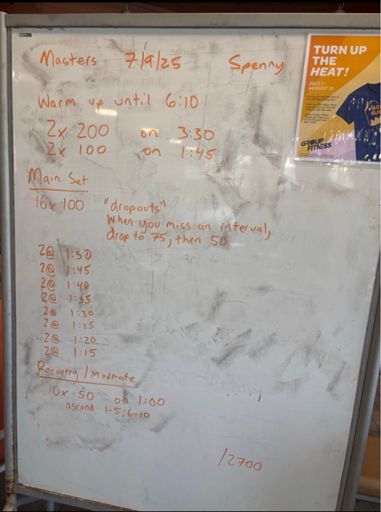 Masters 7/9/25 Spenny
Warm up until 6:10
2x 200 on 3:30
2x 100 on 1:45
Main Set
16x 100 "dropouts"
When you miss an interval,
drop to 75, then 50
2@ 1:50
2@ 1:45
2@ 1:40
2@ 1:35
2@ 1:30
2@ 1:25
2@ 1:20
2@ 1:15
Recovery / Moderate
10x 50 on 1:00
ascend 1-5, 6-10
/2700
TURN UP
THE
HEAT!
GROUP
FITNESS